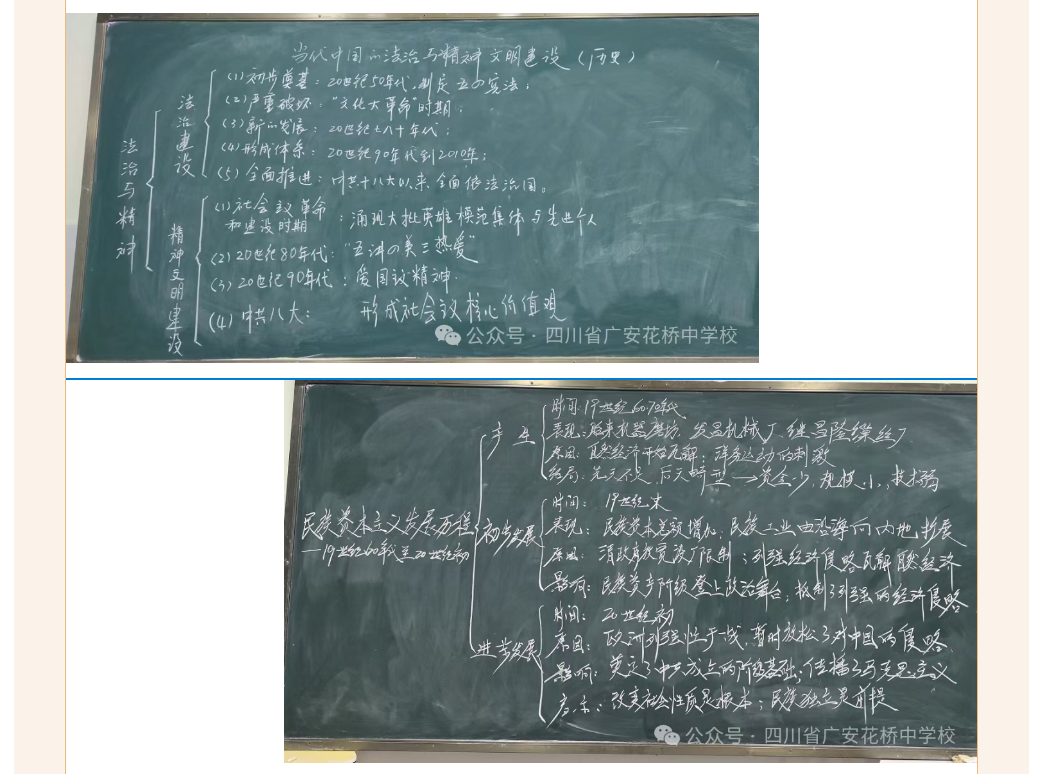 当代中国的法治与精神文明建设（历史）
法治与精神
法治建设
（1）初步奠基：20世纪50年代，制定五四宪法；
（2）严重破坏："文化大革命"时期；
（3）新的发展：20世纪七八十年代；
（4）形成体系：20世纪90年代到2010年；
（5）全面推进：中共十八大以来，全面依法治国。
精神文明建设
（1）社会主义革命和建设时期：涌现大批英雄模范集体与先进个人
（2）20世纪80年代："五讲四美三热爱"
（3）20世纪90年代：爱国主义精神.
（4）中共八大： 形成社会主义核心价值观
公众号·四川省广安花桥中学校
民族资本主义发展历程
—19世纪60年代至20世纪初
产生
时间：19世纪60.70年代
表现：后来机器磨坊、发昌机械厂、继昌隆缫丝厂
原因：自然经济开始瓦解；洋务运动的刺激
结局：先天不足，后天畸型→资金少，规模小，技术弱
初步发展
时间： 19世纪末
表现：民族资本总额增加，民族工业由沿海向内地拓展
原因：清政府放宽设厂限制；列强经济侵略瓦解自然经济
影响：民族资产阶级登上政治舞台；抵制了列强的经济侵略
进步发展
时间： 20世纪初
原因：欧洲列强忙于一战，暂时放松了对中国的侵略.
影响：奠定了中共成立的阶级基础；传播了马克思主义
启示：改变社会性质是根本；民族独立是前提
公众号·四川省广安花桥中学校